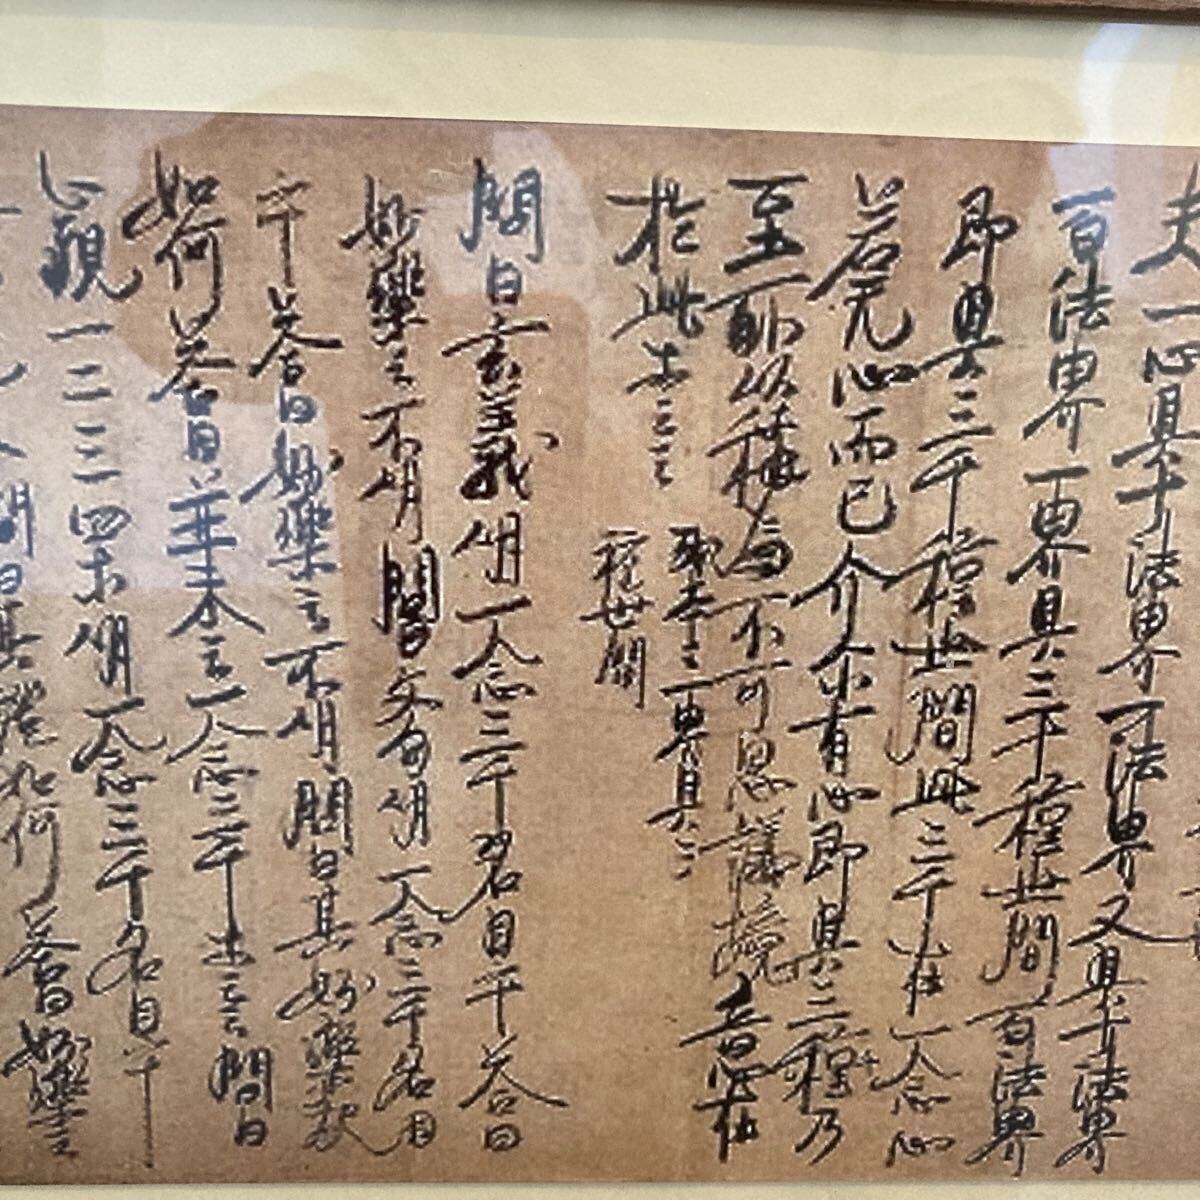 夫一心具十法界一法界又具十法界
百法界一界具三十種世間百法界
即具三千種世間此三千在一念心
若无心而已介尓有心即具三千種乃
至所以称為不可思議境意在
於此等云云 或本云一界具三
種世間
問曰玄義明一念三千名目乎答曰
妙楽云不明問曰文句明一念三千名目
乎答曰妙楽云不明問曰其妙楽釈
如何答曰並未云一念三千等云云問曰
止観一二三四等明一念三千名目乎
問曰其證如何答曰妙楽云